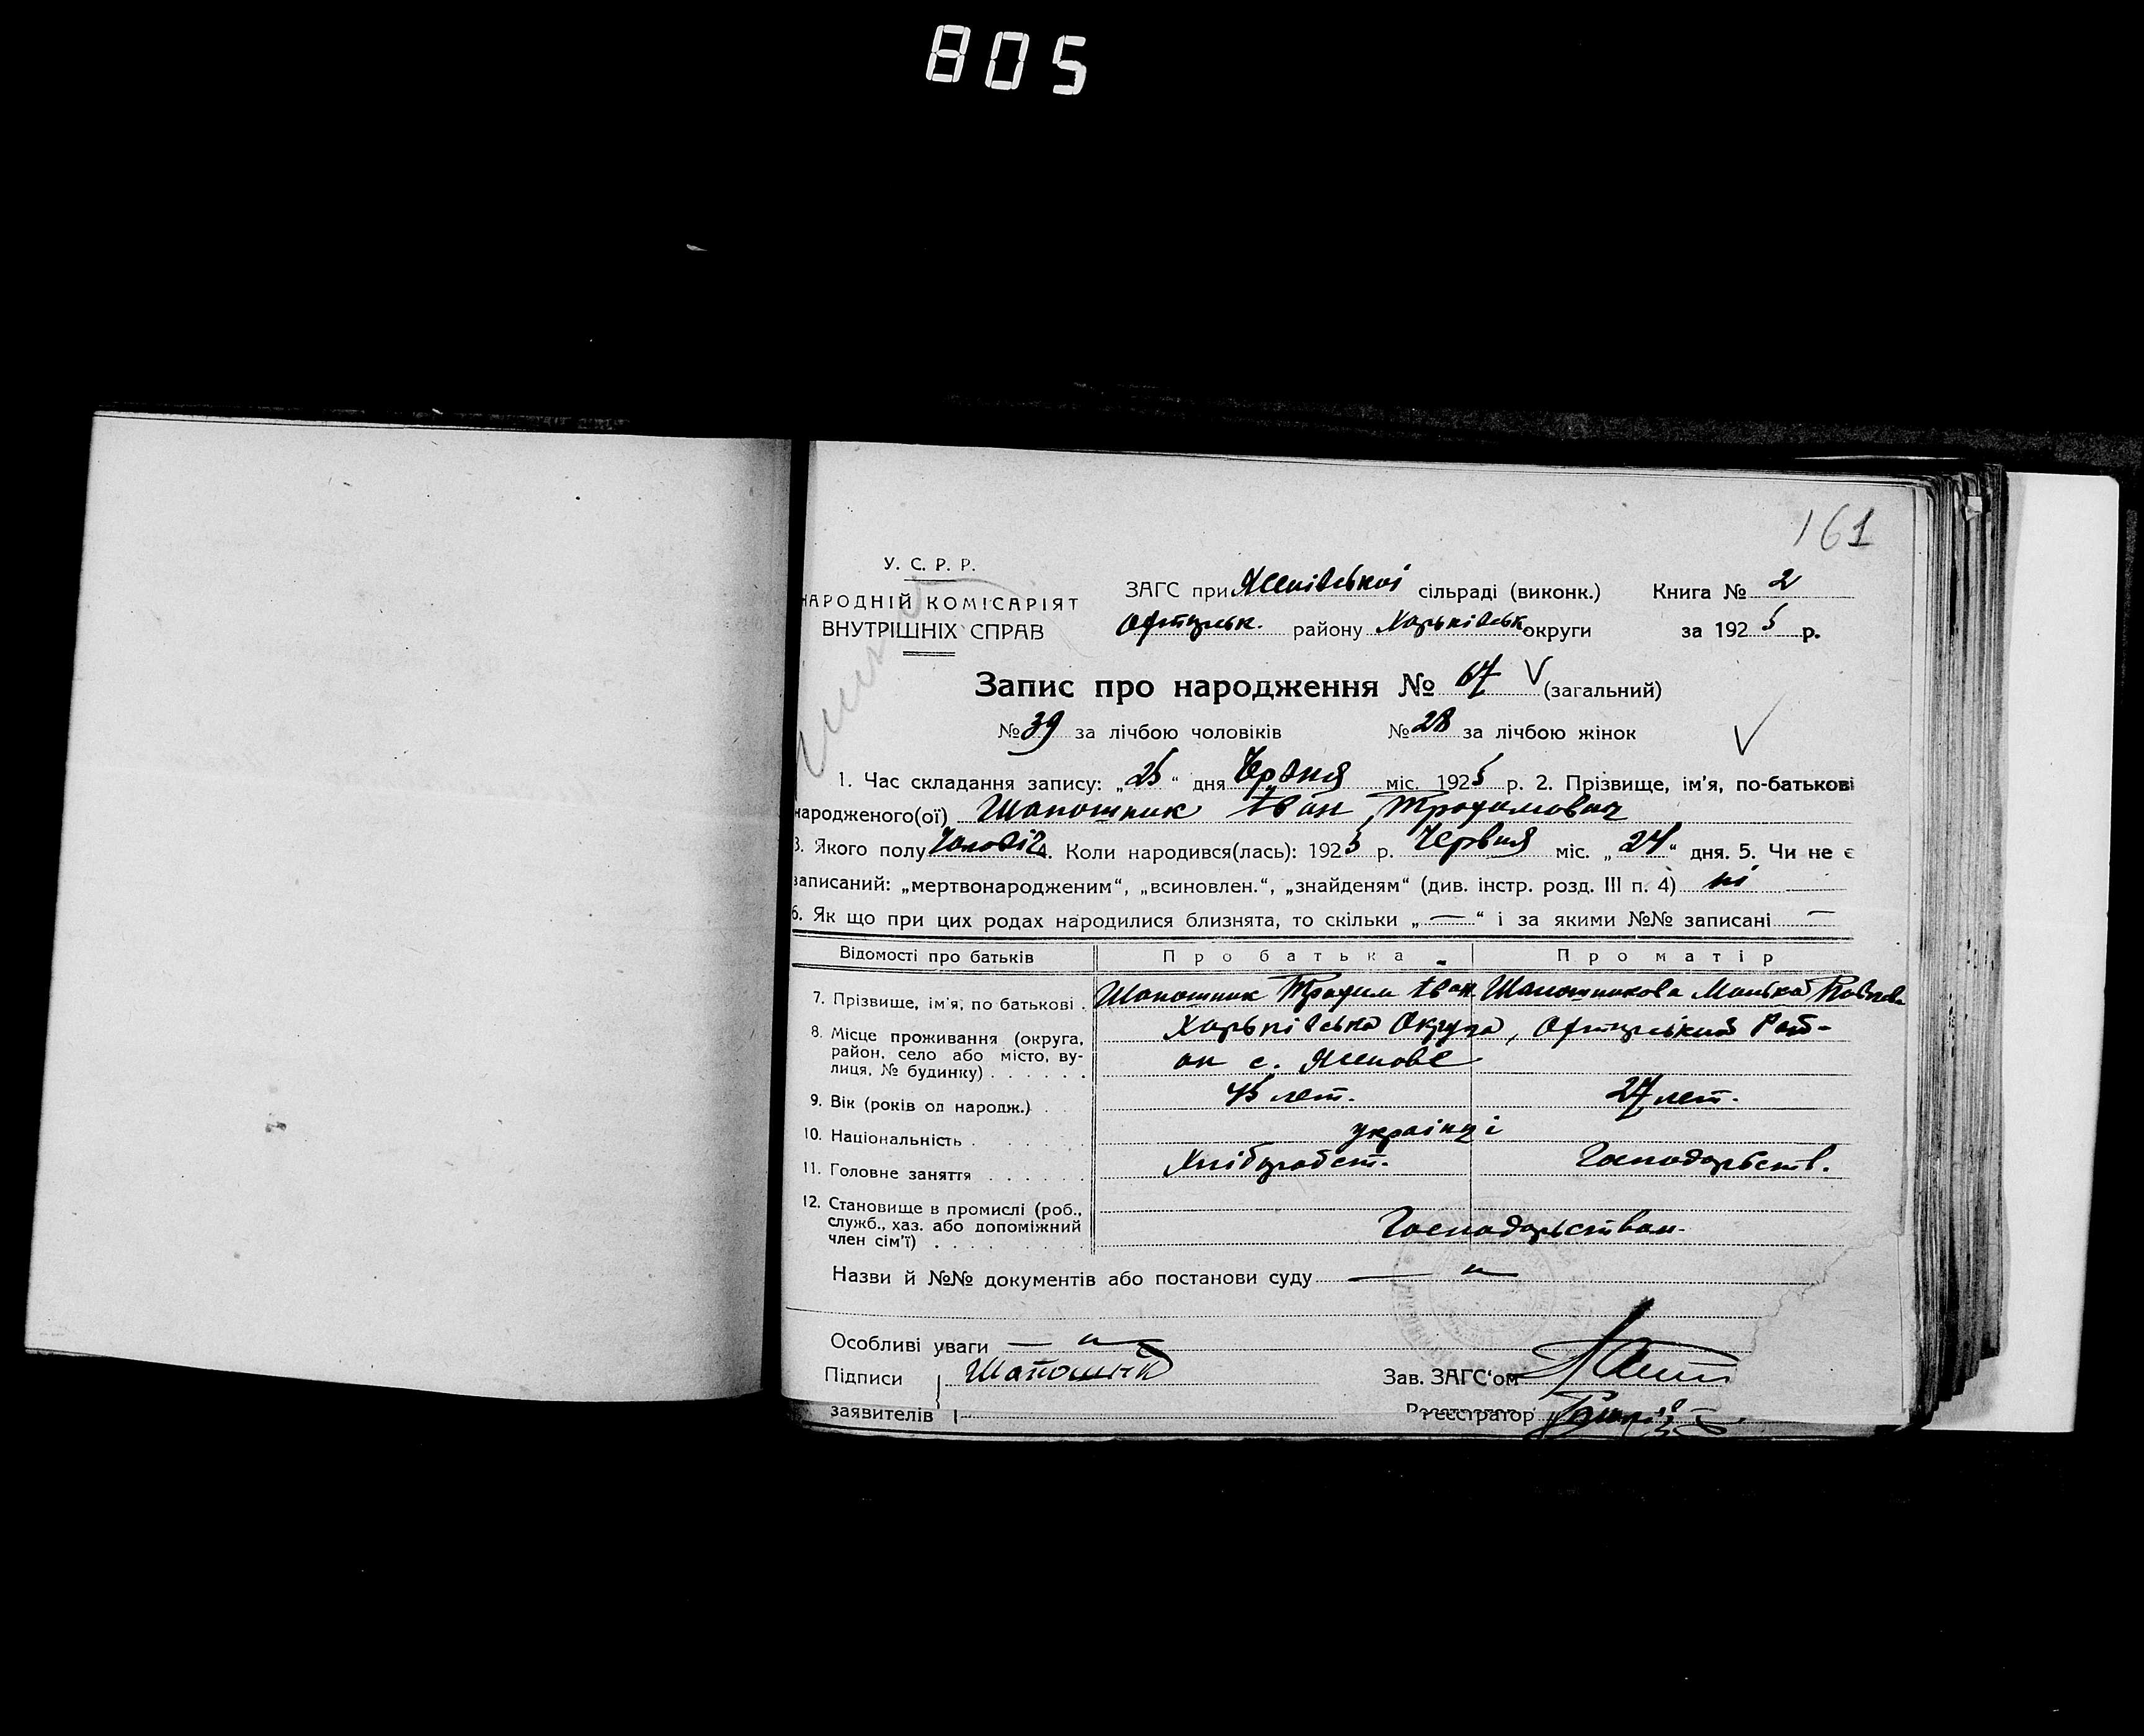 805
161
У. С. Р. Р.
НАРОДНІЙ КОМІСАРІЯТ
ВНУТРІШНІХ СПРАВ
ЗАГС при Ясенівської сільраді (виконк.) Книга № 2
району Харьківськ округи за 1925 р.
Запис про народження № 67 V (загальний)
№ 39 за лічбою чоловіків № 28 за лічбою жінок
1. Час складання запису: „25“ дня Червня міс. 1925 р. 2. Прізвище, ім'я, по-батькові
народженого(ої) Шапошник Іван Трофимович
3. Якого полу Чоловіч 4. Коли народився(лась): 1925 р. Червня міс. „24“ дня. 5. Чи не є
записаний: „мертвонародженим“, „всиновлен.“, „знайденям“ (див. інстр. розд. III п. 4) ні
6. Як що при цих родах народилися близнята, то скільки „—“ і за якими №№ записані —
Відомості про батьків Про батька Про матір
7. Прізвище, ім'я, по батькові . Шапошник Трофим Іван Шапошникова
8. Місце проживання (округа, район, село або місто, вулиця, № будинку) . . . . . . Харьківська Округа, Рай-
он с.
9. Вік (років од народж.) . 45 лет. 27 лет.
10. Національність . . . . . . українці
11. Головне заняття . . . . . . Хліборобст. Господарств.
12. Становище в промислі (роб., служб., хаз. або допоміжний член сім'ї) . . . . . . Господарством
Назви й №№ документів або постанови суду — „ —
Особливі уваги — „ —
Підписи Шапошнік Зав. ЗАГС'ом
заявителів Реєстратор